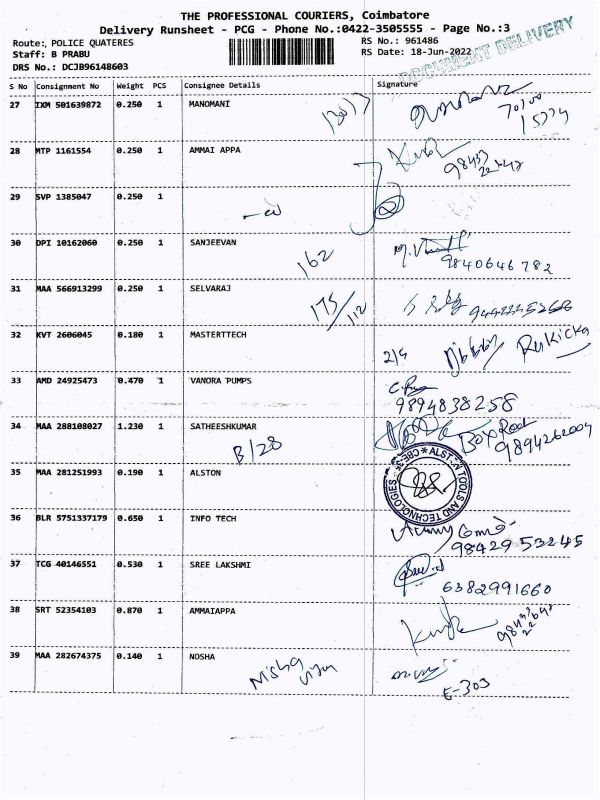 THE PROFESSIONAL COURIERS, Coimbatore
Delivery Runsheet - PCG - Phone No.:0422-3505555 - Page No.:3
Route:, POLICE QUATERES RS No.: 961486
Staff: B PRABU RS Date: 18-Jun-2022
DRS No.: DCJB96148603
DOCUMENT DELIVERY
S No Consignment No Weight PCS Consignee Details Signature
27 IXM 501639872 0.250 1 MANOMANI
28 MTP 1161554 0.250 1 AMMAI APPA
29 SVP 1385047 0.250 1
30 DPI 10162060 0.250 1 SANJEEVAN
162 9840646782
31 MAA 566913299 0.250 1 SELVARAJ
175/112
32 KVT 2606045 0.180 1 MASTERTTECH
Rukicka
33 AMD 24925473 0.470 1 VANORA PUMPS
9894838258
34 MAA 288108027 1.230 1 SATHEESHKUMAR
B/28 9894262004
35 MAA 281251993 0.190 1 ALSTON
ALSTON TOOLS AND TECHNOLOGIES
36 BLR 5751337179 0.650 1 INFO TECH
98429 53245
37 TCG 40146551 0.530 1 SREE LAKSHMI
6382991660
38 SRT 52354103 0.870 1 AMMAIAPPA
39 MAA 282674375 0.140 1 NOSHA
Nisha
E-303